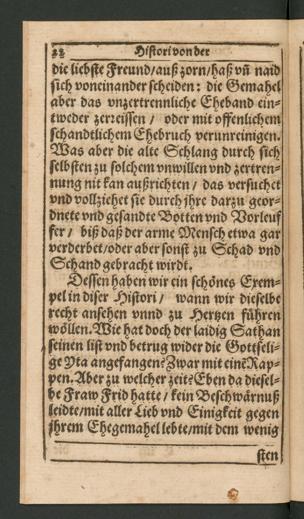 22 Histori von der
die liebste Freund/auß zorn/haß vñ naid
sich voneinander scheiden: die Gemahel
aber das vnzertrennliche Eheband ein-
tweder zerreissen / oder mit offenlichem
schandtlichem Ehebruch verunreinigen.
Was aber die alte Schlang durch sich
selbsten zu solchem vnwillen vnd zertren-
nung nit kan außrichten / das versuchet
vnd vollziehet sie durch jhre darzu geor-
dnete vnd gesandte Botten vnd Vorleuf
fer / biß daß der arme Mensch etwa gar
verderbet/oder aber sonst zu Schad vnd
Schand gebracht wirdt.
Dessen haben wir ein schönes Exem-
pel in diser Histori / wann wir dieselbe
recht ansehen vnnd zu Hertzen führen
wöllen. Wie hat doch der laidig Sathan
seinen list vnd betrug wider die Gottseli-
ge Yta angefangen? Zwar mit einẽ Rap-
pen. Aber zu welcher zeit? Eben da diesel-
be Fraw Frid hatte / kein Beschwärnuß
leidte/mit aller Lieb vnd Einigkeit gegen
jhrem Ehegemahel lebte/mit dem wenig
sten